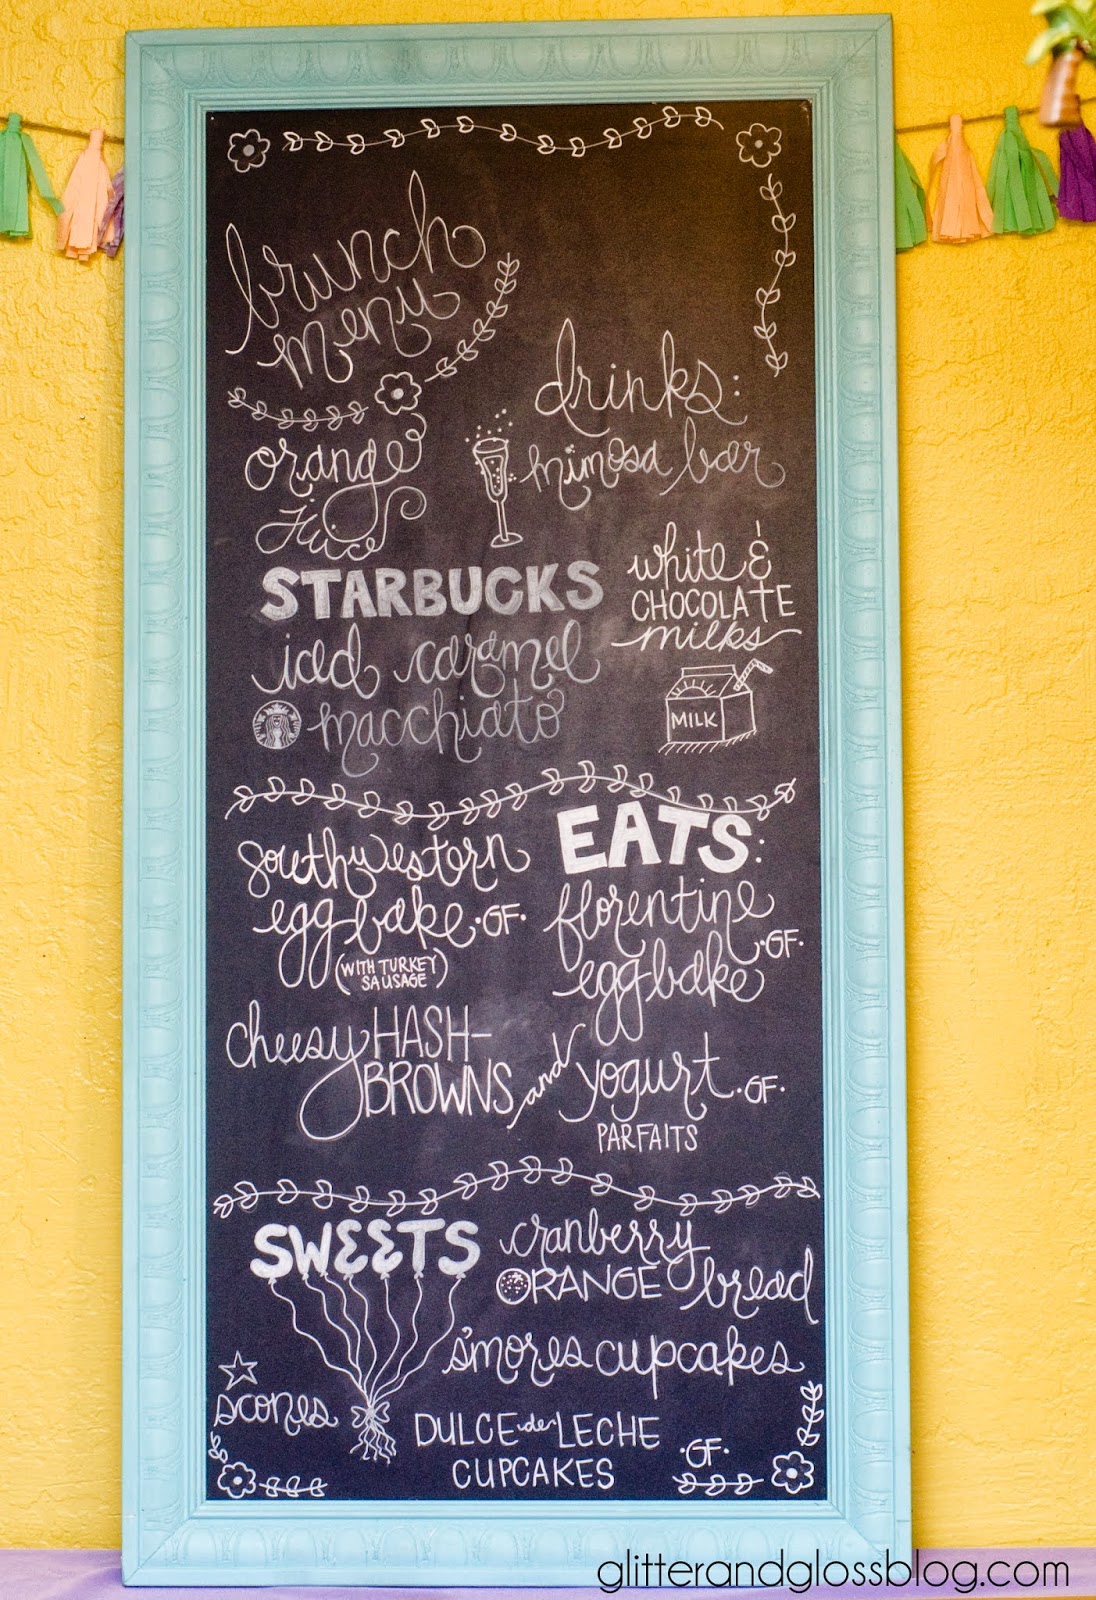 brunch
menu
drinks:
mimosa bar
orange
Juice
white &
CHOCOLATE
milks
MILK
STARBUCKS
iced caramel
macchiato
EATS:
southwestern
egg bake ·GF·
(WITH TURKEY
SAUSAGE)
florentine
egg bake ·GF·
cheesy HASH-
BROWNS and yogurt ·GF·
PARFAITS
SWEETS
cranberry
ORANGE bread
s'mores cupcakes
scones
DULCE de LECHE
CUPCAKES ·GF·
glitterandglossblog.com